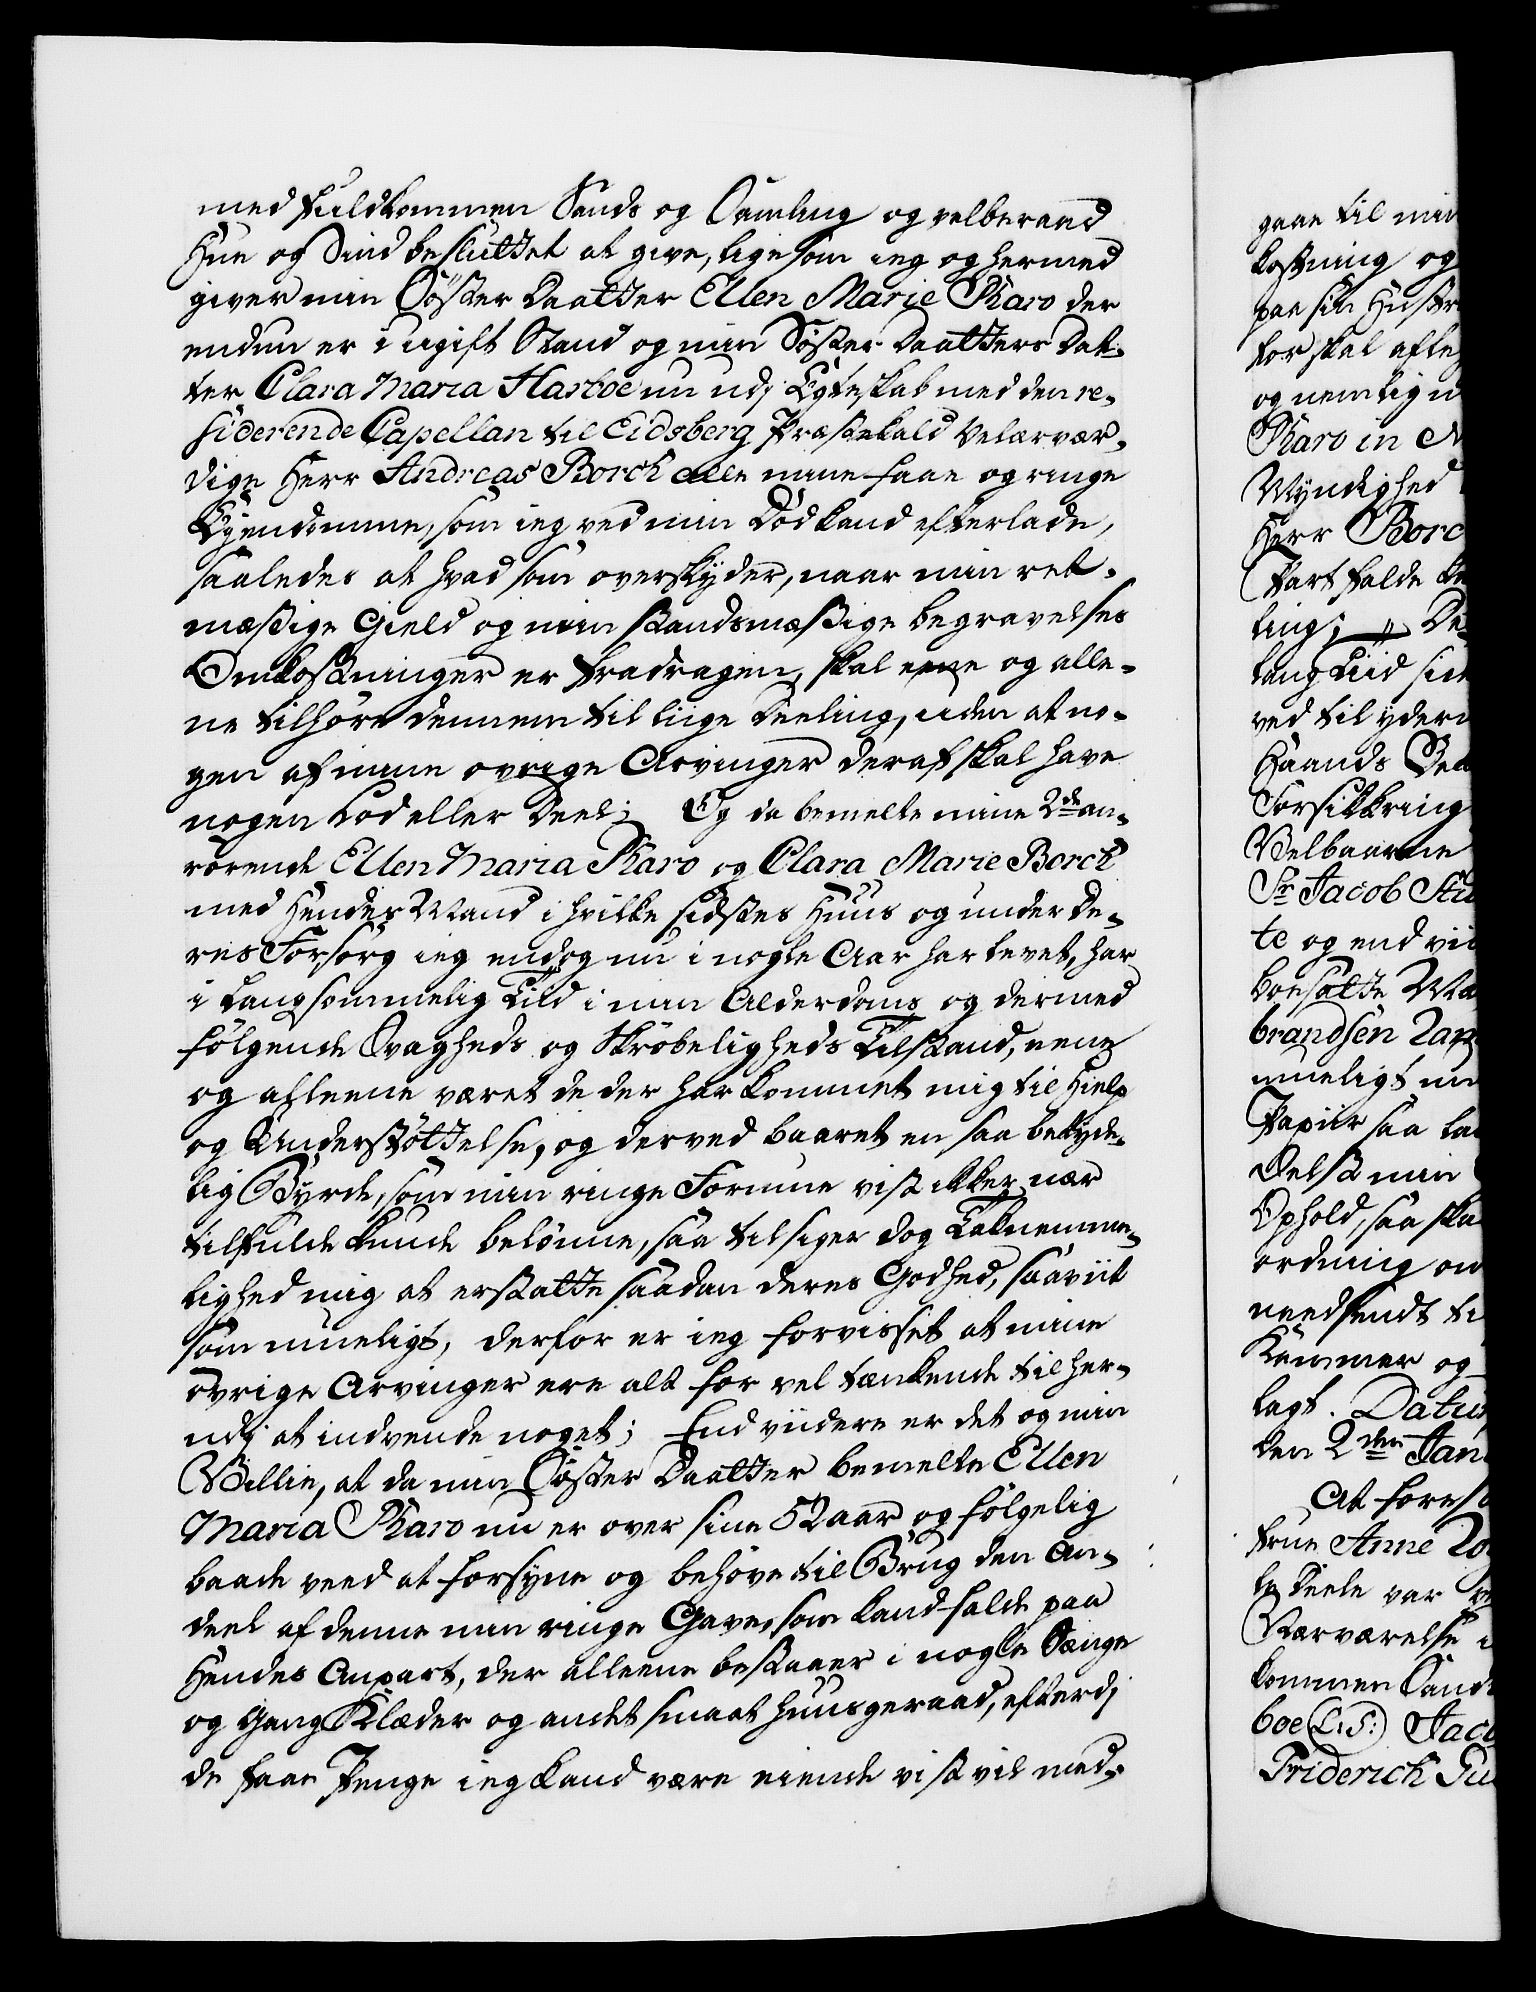 med fuldkommen Sands og Samling og velberaad
Hue og Sind besluttet at give, lige som ieg og hermed
giver min Søster Daatter Ellen Marie Pharo der
endnu er i ugift Stand og min Søster Daatters Dat-
ter Clara Maria Harboe nu udj Egteskab med den re-
siderende Capellan til Eidsberg Præstekald Velærvær-
dige Herr Andreas Borch alle mine faae og ringe
Eyendomme, som ieg ved min Død kand efterlade,
saaledes at hvad som overskyder, naar min ret-
mæssige Gield og min standsmæssige begravelses
Omkostninger er fradragen, skal ene og alle-
ne tilhøre dennem til liige Deeling, uden at no-
gen af mine øvrige Arvinger deraf skal have
nogen Lod eller Deel; Og da bemelte mine 2de an-
rørende Ellen Maria Pharo og Clara Marie Borch
med Hendes Mand i hvilke sidstes Huus og under De-
res Forsorg ieg endog nu i nogle Aar har levet, har
i langsommelig Tiid i min Alderdoms og dermed
følgende Svagheds og Skrøbeligheds Tilstand, eene
og alleene været de der har kommet mig til Hielp
og Understøttelse, og derved baaret en saa betyde-
lig Byrde, som min ringe Formue vist ikke nær
tilfulde kunde belønne, saa tilsiger dog Taknemme-
lighed mig at erstatte saadan deres Godhed, saaviit
som mueligt, derfor er ieg forvisset at mine
øvrige Arvinger ere alt for vel tænkende til her-
udj at indvende noget; End viidere er det og min
Villie, at da min Søster Daatter bemelte Ellen
Maria Pharo nu er over sine 52 aar og følgelig
baade veed at forsyne og behøve til Brug den An-
deel af denne min ringe Gave, som kand falde paa
Hendes Anpart, der alleene bestaaer i nogle Senge
og Gang Klæder og andet smaat huusgeraad, efterdj
de faae Penge ieg kand være eiende vist vil med-
gaae til min
kostning og
paa sin Hustr
for skal afle
og nemlig
Pharo in
Myndighed
Herr Borc
Part falde
ling; De
lang Tiid
ved til yder
Haands
Forsikkring
Velbaarne
Sr Jacob
te og end vii
boesatte Ma
brandsen
mueligt
Papiir saa
Delst min
Ophold, saa ska
ordning om
needsendt ti
Kammer og
lagt. Datu
den 2den Jan
At fores
frue Anne
deele var
Nærværelse i
kommen Sands
boe (L:S:) Jaco
Friderich